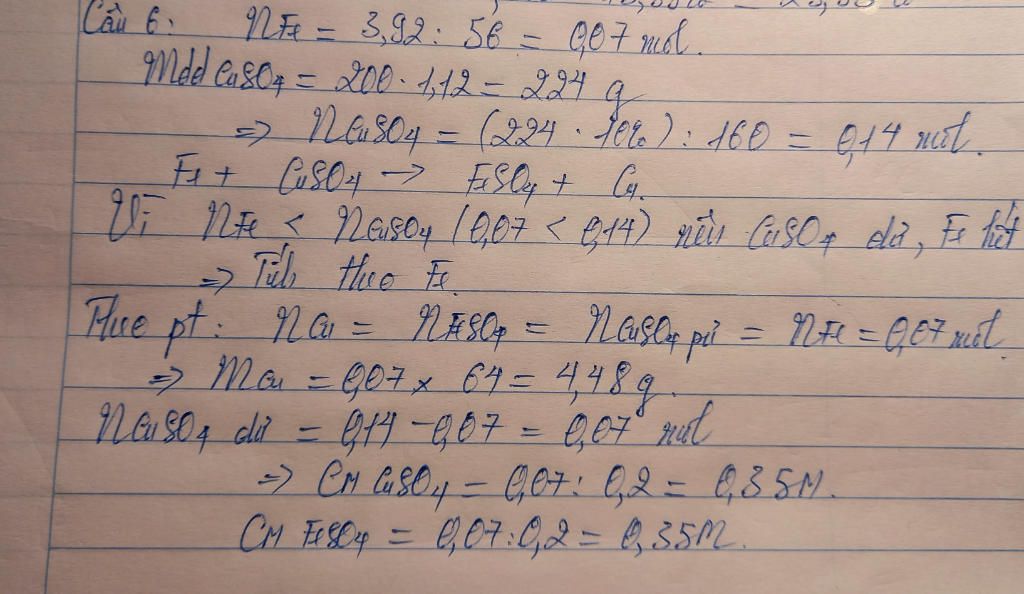 Câu 6: nFe = 3,92 : 56 = 0,07 mol.
mdd CuSO4 = 200 . 1,12 = 224 g
=> nCuSO4 = (224 . 10%) : 160 = 0,14 mol.
Fe + CuSO4 → FeSO4 + Cu.
Vì nFe < nCuSO4 (0,07 < 0,14) nên CuSO4 dư, Fe hết
=> Tính theo Fe.
Theo pt: nCu = nFeSO4 = nCuSO4 pư = nFe = 0,07 mol
=> mCu = 0,07 x 64 = 4,48 g.
nCuSO4 dư = 0,14 - 0,07 = 0,07 mol
=> CM CuSO4 = 0,07 : 0,2 = 0,35M.
CM FeSO4 = 0,07 : 0,2 = 0,35M.